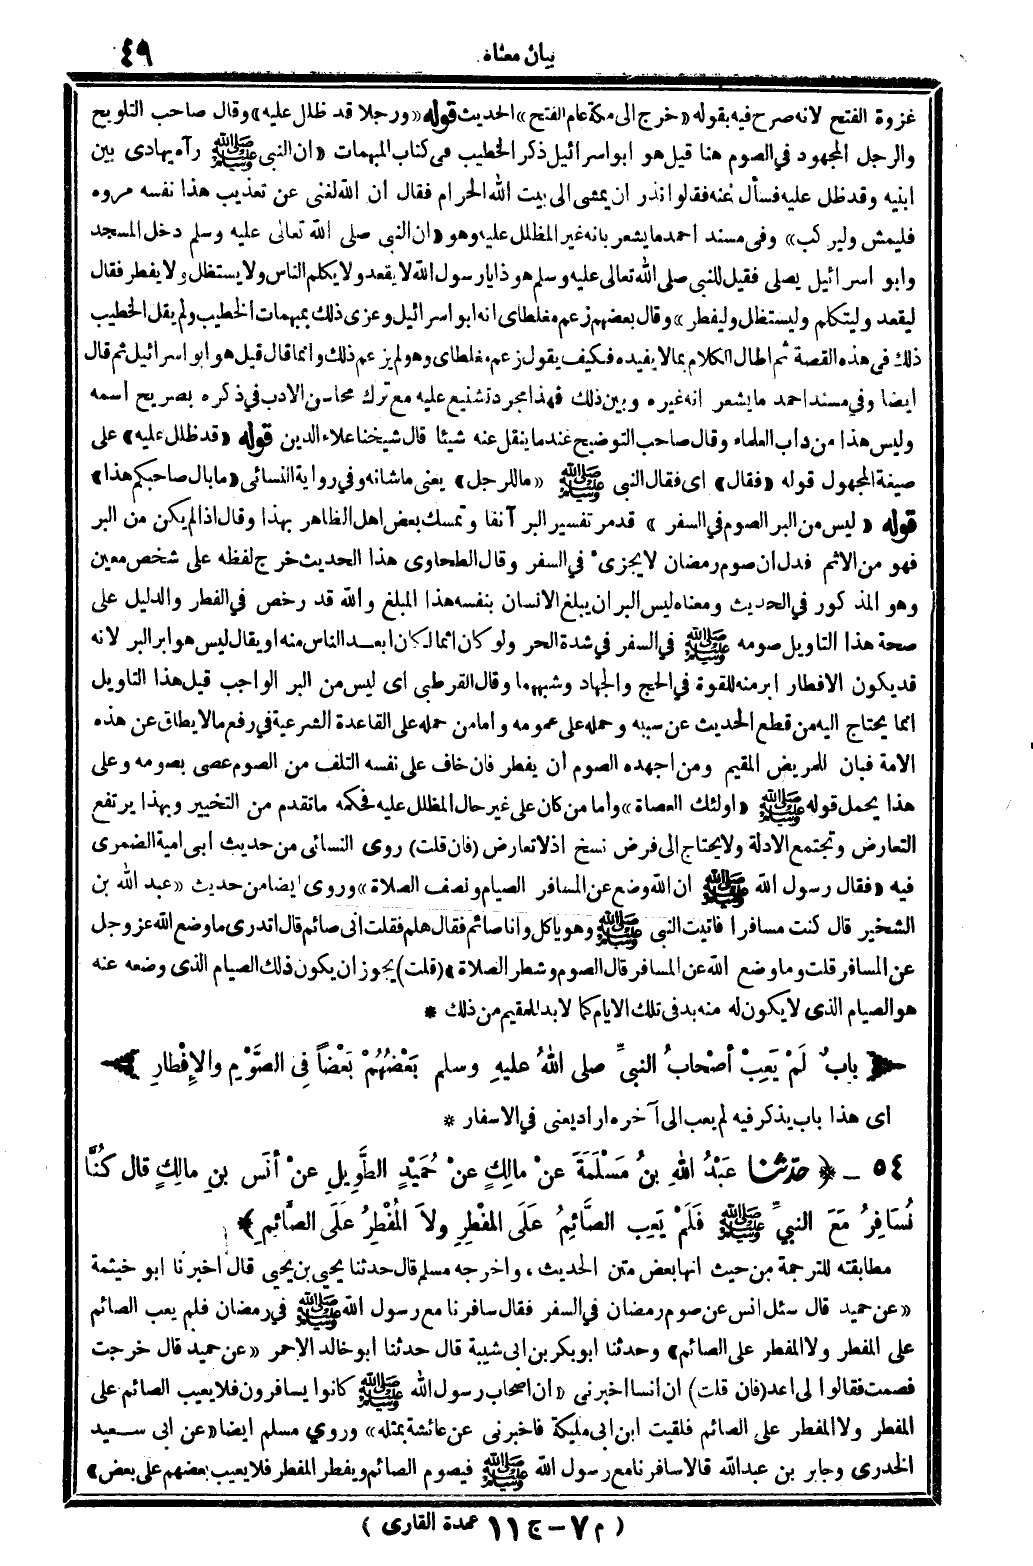 بيان معناه
٤٩
غزوة الفتح لانه صرح فيه بقوله «خرج الى مكة عام الفتح» الحديث قوله «ورجلا قد ظلل عليه» وقال صاحب التلويح
والرجل المجهود في الصوم هنا قيل هو ابو اسرائيل ذكر الخطيب في كتاب المبهمات «ان النبي ﷺ رآه يهادى بين
ابنيه وقد ظلل عليه فسأل عنه فقلوا نذر ان يمشى الى بيت الله الحرام فقال ان الله لغنى عن تعذيب هذا نفسه مروه
فليمش ولير كب» وفى مسند احمد ما يشعر بانه غير المظلل عليه وهو «ان النبي صلى الله تعالى عليه وسلم دخل المسجد
وابو اسرائيل يصلى فقيل للنبي صلى الله تعالى عليه وسلم هو ذا يارسول الله لا يقعد ولا يكلم الناس ولا يستظل ولا يفطر فقال
ليقعد وليتكلم وليستظل وليفطر» وقال بعضهم زعم مغلطاى انه ابو اسرائيل وعزى ذلك بمبهمات الخطيب ولم يقل الخطيب
ذلك في هذه القصة ثم اطال الكلام بما لا يفيده فكيف يقول زعم مغلطاى وهو لم يزعم ذلك وانما قال قيل هو ابو اسرائيل ثم قال
ايضا وفي مسند احمد ما يشعر انه غيره وبين ذلك فهذا مجرد تشنيع عليه مع ترك محاسن الادب في ذكره بصريح اسمه
وليس هذا من داب العلماء وقال صاحب التوضيح عند ما ينقل عنه شيئا قال شيخنا علاء الدين قوله «قد ظلل عليه» على
صيغة المجهول قوله «فقال» اى فقال النبي ﷺ «ما للرجل» يعنى ما شانه وفي رواية النسائى «ما بال صاحبكم هذا»
قوله «ليس من البر الصوم في السفر» قد مر تفسير البر آنفا وتمسك بعض اهل الظاهر بهذا وقال اذا لم يكن من البر
فهو من الاثم فدل ان صوم رمضان لا يجزىء في السفر وقال الطحاوى هذا الحديث خرج لفظه على شخص معين
وهو المذكور في الحديث ومعناه ليس البر ان يبلغ الانسان بنفسه هذا المبلغ والله قد رخص في الفطر والدليل على
صحة هذا التاويل صومه ﷺ في السفر في شدة الحر ولو كان اثما لكان ابعد الناس منه او يقال ليس هو ابر البر لانه
قد يكون الافطار ابر منه للقوة في الحج والجهاد وشبههما وقال القرطبي اى ليس من البر الواجب قيل هذا التاويل
انما يحتاج اليه من قطع الحديث عن سببه وحمله على عمومه واما من حمله على القاعدة الشرعية في رفع ما لا يطاق عن هذه
الامة فبان للمريض المقيم ومن اجهده الصوم أن يفطر فان خاف على نفسه التلف من الصوم عصى بصومه وعلى
هذا يحمل قوله ﷺ «اولئك العصاة» واما من كان على غير حال المظلل عليه فحكمه ما تقدم من التخيير وبهذا يرتفع
التعارض وتجتمع الادلة ولا يحتاج الى فرض نسخ اذ لا تعارض (فان قلت) روى النسائى من حديث ابى امية الضمرى
فيه «فقال رسول الله ﷺ ان الله وضع عن المسافر الصيام ونصف الصلاة» وروى ايضا من حديث «عبد الله بن
الشخير قال كنت مسافرا فاتيت النبي ﷺ وهو ياكل وانا صائم فقال هلم فقلت انى صائم قال اتدرى ما وضع الله عز وجل
عن المسافر قلت وما وضع الله عن المسافر قال الصوم وشطر الصلاة» (قلت) يجوز ان يكون ذلك الصيام الذى وضعه عنه
هو الصيام الذى لا يكون له منه بد في تلك الايام كما لا بد للمقيم من ذلك *
بابٌ لَمْ يَعِبْ أصْحَابُ النبيِّ صلى اللهُ عليهِ وسلم بَعْضُهُمْ بَعْضاً فِى الصَّوْمِ والإِفْطارِ
اى هذا باب يذكر فيه لم يعب الى آخره اراد يعنى في الاسفار *
٥٤ ـ ﴿ حدّثنا عَبْدُ اللهِ بنُ مَسْلَمَةَ عنْ مالِكٍ عنْ حُمَيْدٍ الطَّوِيلِ عنْ أنَسِ بنِ مالِكٍ قال كُنَّا
نُسَافِرُ مَعَ النبيِّ ﷺ فَلَمْ يَعِبِ الصَّائِمُ عَلَى المُفْطِرِ ولاَ المُفْطِرُ عَلَى الصَّائِمِ ﴾
مطابقته للترجمة من حيث انها بعض متن الحديث، واخرجه مسلم قال حدثنا يحيى بن يحيى قال اخبرنا ابو خيثمة
«عن حميد قال سئل انس عن صوم رمضان في السفر فقال سافرنا مع رسول الله ﷺ في رمضان فلم يعب الصائم
على المفطر ولا المفطر على الصائم» وحدثنا ابو بكر بن ابى شيبة قال حدثنا ابو خالد الاحمر «عن حميد قال خرجت
فصمت فقالوا لى اعد (فان قلت) ان انسا اخبرنى «ان اصحاب رسول الله ﷺ كانوا يسافرون فلا يعيب الصائم على
المفطر ولا المفطر على الصائم فلقيت ابن ابى مليكة فاخبرنى عن عائشة بمثله» وروي مسلم ايضا «عن ابى سعيد
الخدرى وجابر بن عبد الله قالا سافرنا مع رسول الله ﷺ فيصوم الصائم ويفطر المفطر فلا يعيب بعضهم على بعض»
(م ٧ – ج ١١ عمدة القارى)